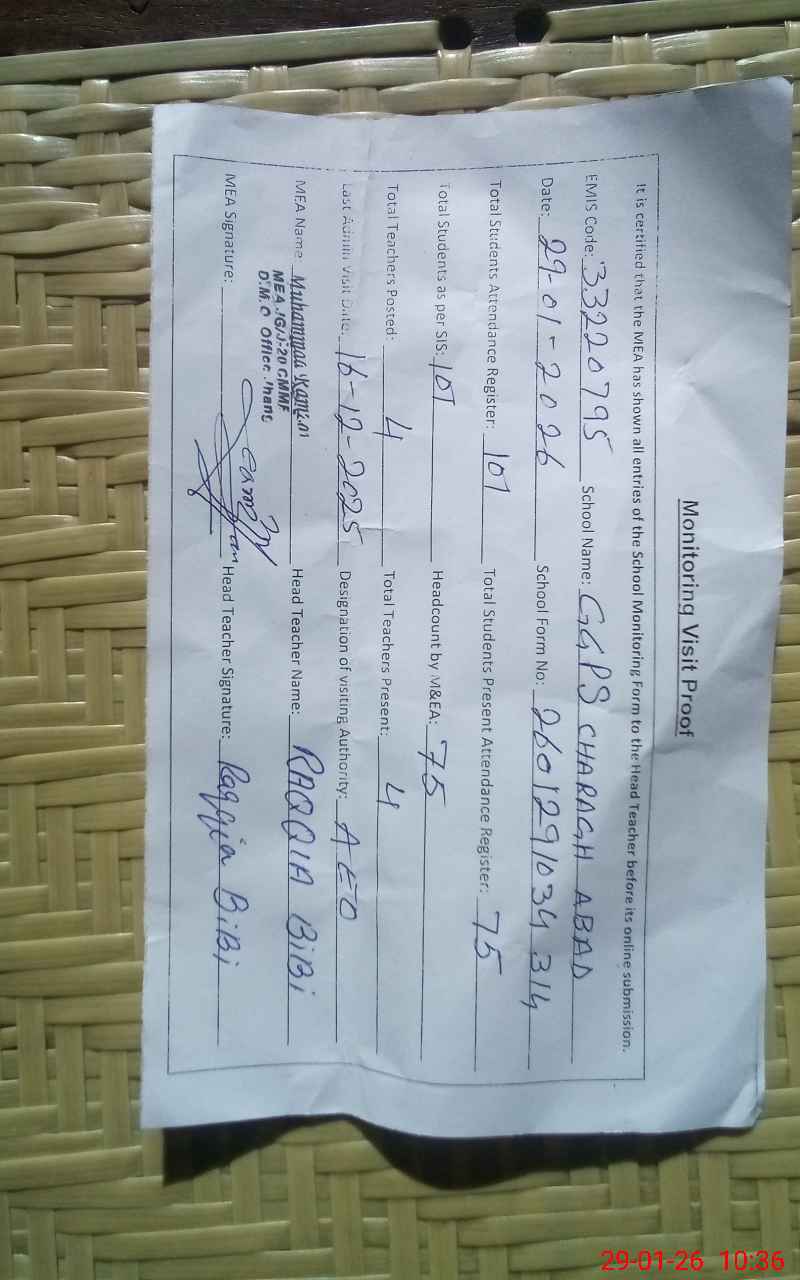 Monitoring Visit Proof
It is certified that the MEA has shown all entries of the School Monitoring Form to the Head Teacher before its online submission.
EMIS Code: 33220795 School Name: GGPS CHARAGH ABAD
Date: 29-01-2026 School Form No: 2601291034314
Total Students Attendance Register: 107 Total Students Present Attendance Register: 75
Total Students as per SIS: 107 Headcount by M&EA: 75
Total Teachers Posted: 4 Total Teachers Present: 4
Last Admin Visit Date: 16-12-2025 Designation of visiting Authority: AEO
MEA Name: Muhammad Head Teacher Name: RAQQIA BiBi
MEA
D.M.O Office Jhang
MEA Signature: Head Teacher Signature: Raqqia BiBi
29-01-26 10:36